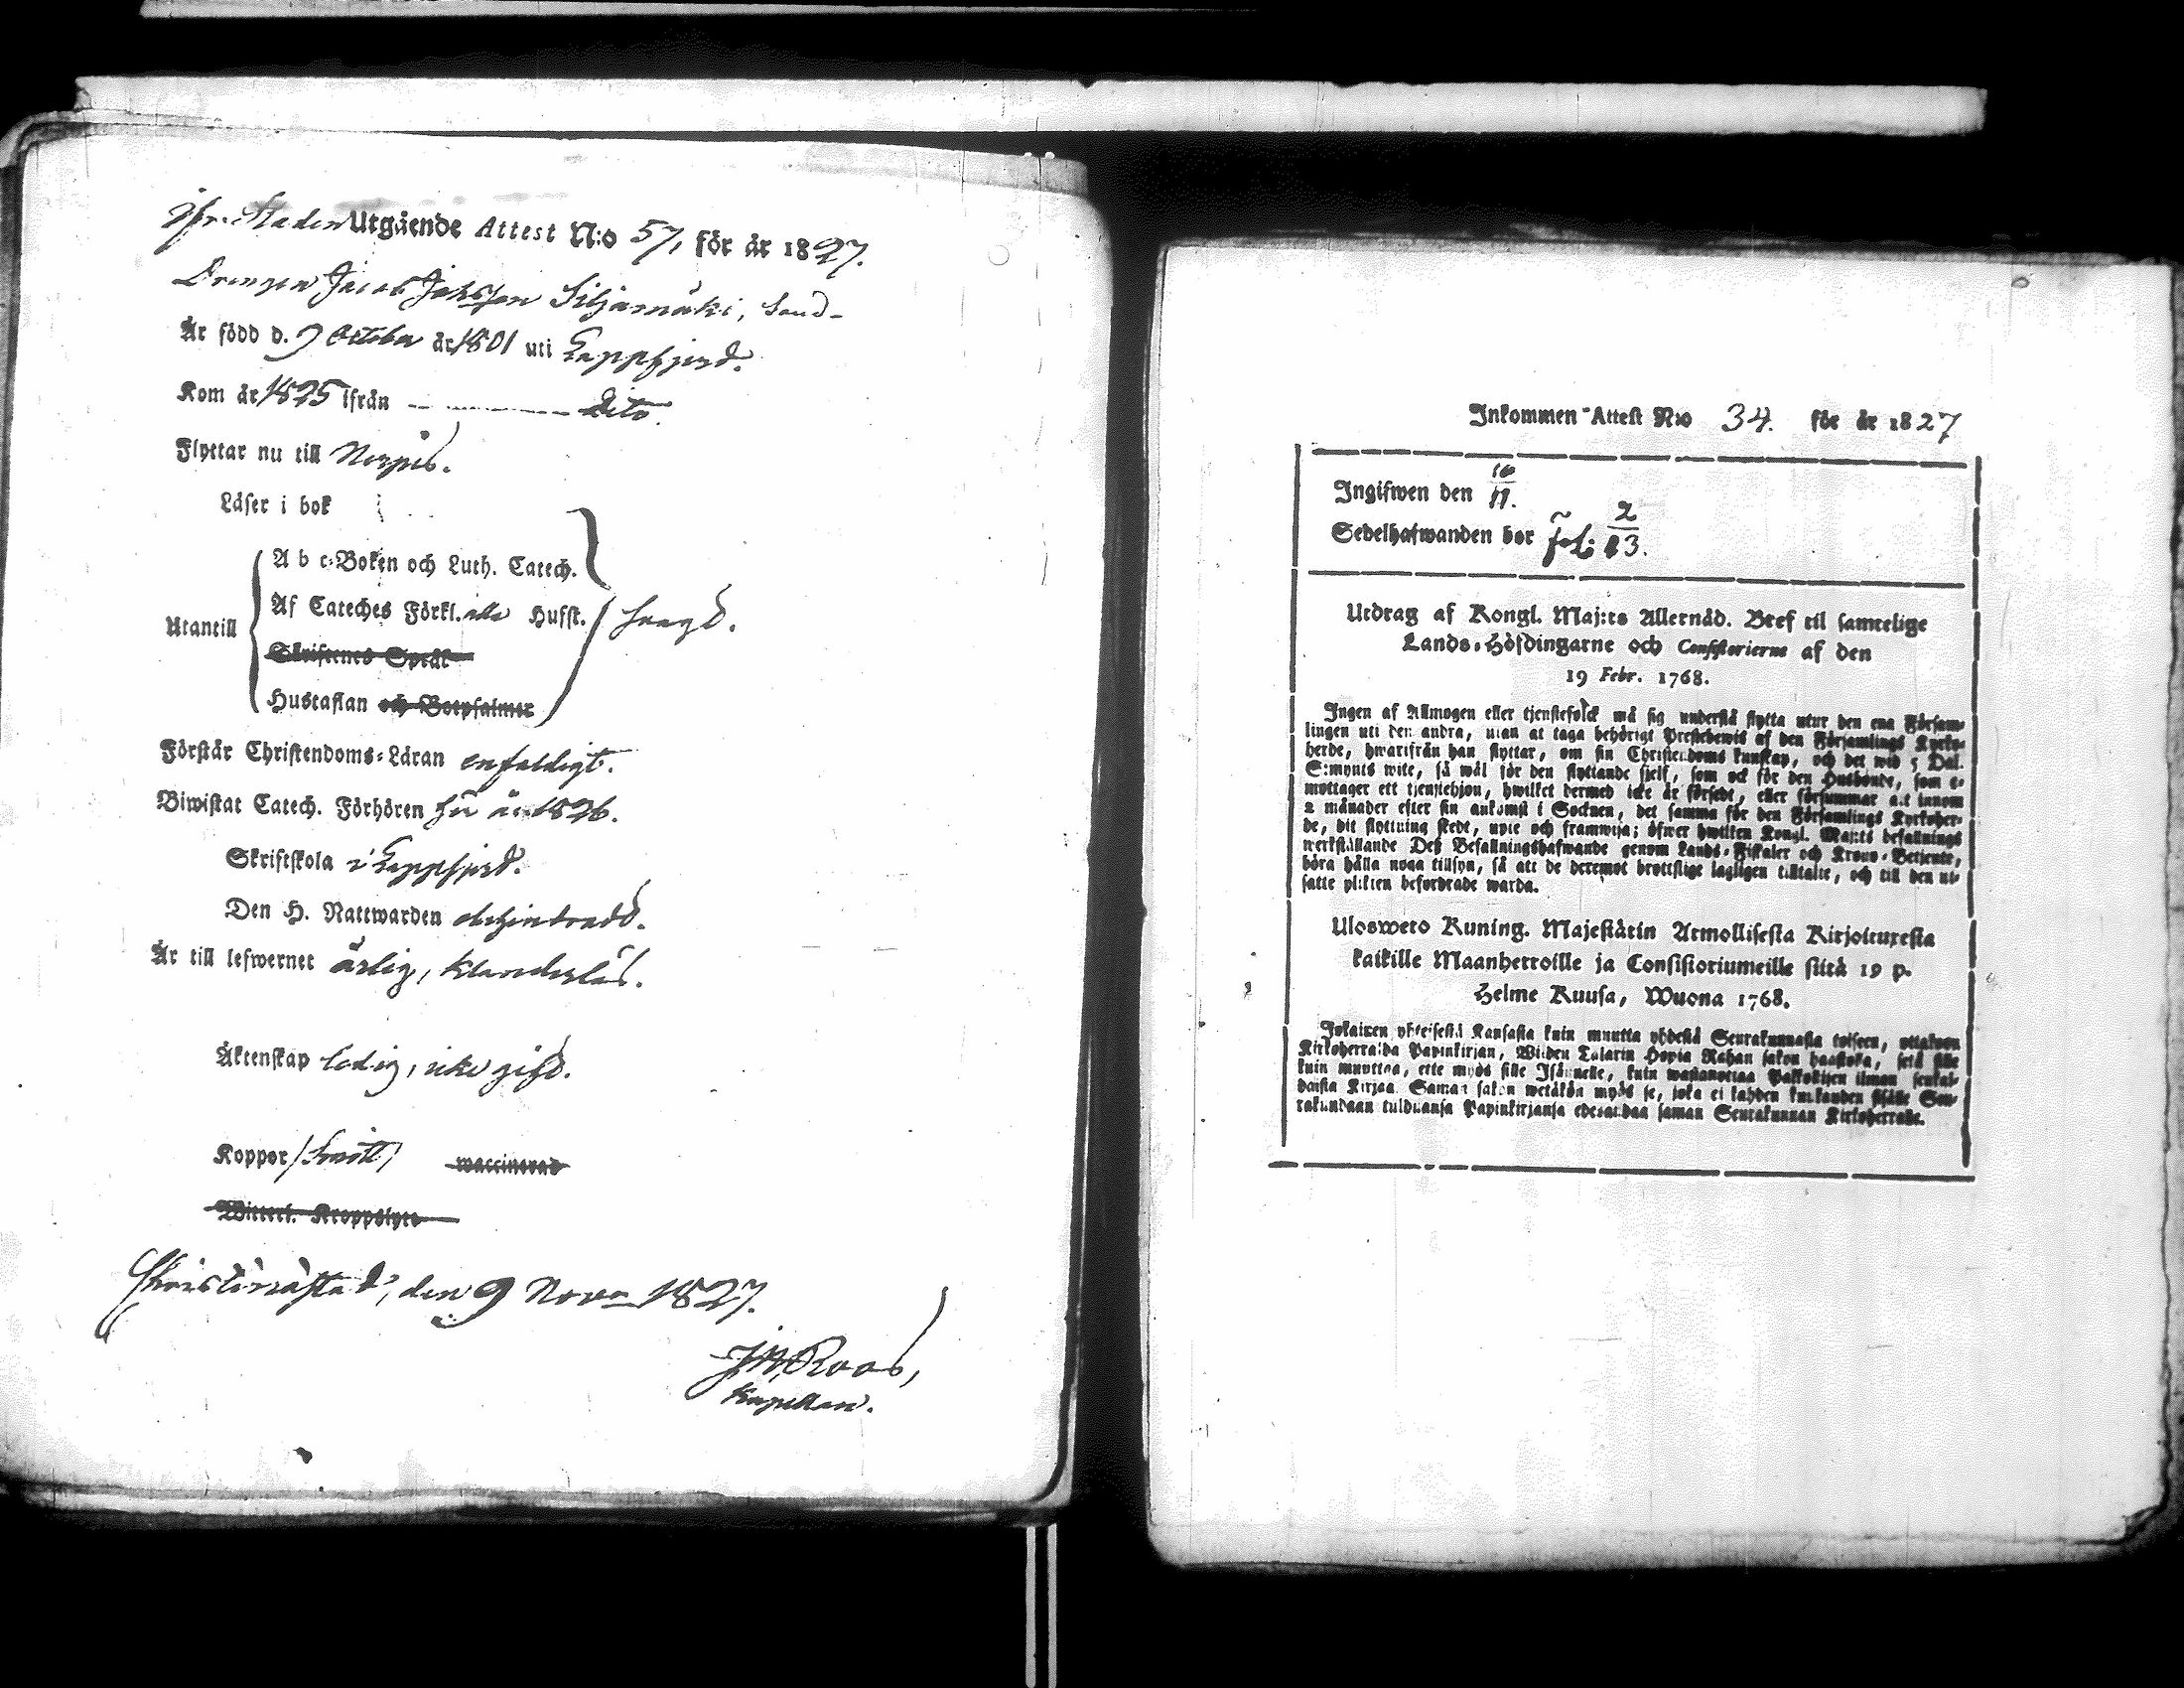 ifr. Staden Utgående Attest N:o 57, för år 1827.
Drengen Jacob Jakssson Siljamäki, som d-
Är född d. 9 October år 1801 uti Lappfjerd.
Kom år 1825 ifrån — — — Dito.
Flyttar nu till Nerpes.
Läser i bok
A b c-Boken och Luth. Catech.
Af Cateches Förkl. alla Husst.
Utantill
Skriftenes Språk
Hustaflan och Botpsalmer
Förstår Christendoms-Läran enfaldigt.
Biwistat Catech. Förhören här år 1826.
Skriftskola i Lappfjerd.
Den H. Nattwarden
Är till lefwernet ärlig, klanderlös.
Äktenskap ledig, icke gifd.
Koppor (haft) waccinerad
Witterl. Kroppslyte
Christinæstad, den 9 Nov. 1827.
Roos,
Kapellan.
Inkommen Attest N:o 34. för år 1827
Ingifwen den 10/11.
Sedelhafwanden bor Fol: 2/13.
Utdrag af Kongl. Maj:ts Allernåd. Bref til samtelige
Lands-Höfdingarne och Consistorierne af den
19 Febr. 1768.
Ingen af Allmogen eller tjenstefolck må sig understå flytta utur den ena Försam-
lingen uti den andra, utan at taga behörigt Prestebewis af den Församlings Kyrko-
herde, hwarifrån han flyttar, om sin Christendoms kunskap, och det wid 5 Dal.
S:mynts wite, så wäl för den flyttande sjelf, som ock för den Husbonde, som e-
mottager ett tjenstehjon, hwilket dermed icke är försedt, eller försummar att innom
2 månader efter sin ankomst i Socknen, det samma för den Församlings Kyrkoher-
de, dit flyttning skedt, upte och framwisa; öfwer hwilken Kongl. Maj:ts befallnings
werkställande Deß Befallningshafwande genom Lands-Fiskaler och Krono-Betjente,
böra hålla noga tillsyn, så att de deremot brottslige lagligen tilltalte, och till den ut-
satte plikten befordrade warda.
Ulosweto Kuning. Majestätin Armollisesta Kirjoituxesta
kaikille Maanherroille ja Consistoriumeille siitä 19 p.
Helme Kuusa, Wuona 1768.
Jokainen yhteisestä Kansasta kuin muutta yhdestä Seurakunnasta toiseen, ottakoon
Kirkoherralda Papinkirjan, Wijden Talarin Hopia Rahan sakon haastolla, sekä sille
kuin muuttaa, ette myös sille Isännelle, kuin wastanottaa Palkollisen ilman senkal-
daista Kirjaa. Saman sakon wetäkön myös se, joka ei kahden kuukauden sisälle Seu-
rakundaan tulduansa Papinkirjansa edesandaa saman Seurakunnan Kirkoherralle.